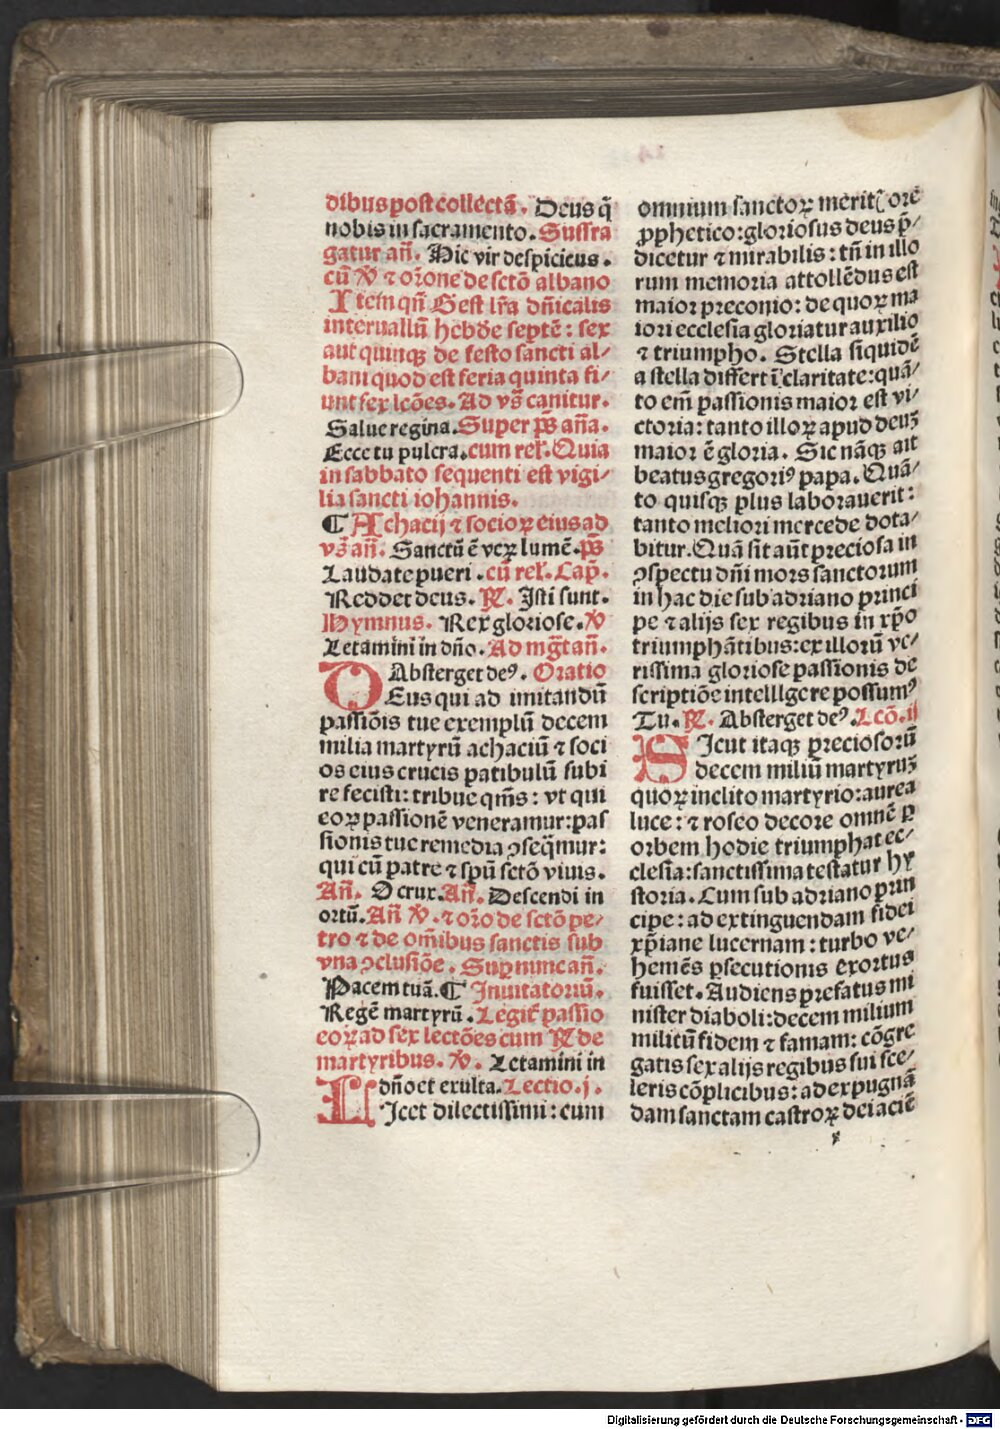 dibus post collectā. Deus q̄
nobis in sacramento. Suffra
gatur añ. Hic vir despiciens.
cū ℣ ⁊ orōne de sctō albano
Item qñ G est lr̄a dñicalis
interuallū hebde septē: sex
aut quinqꝫ de festo sancti al⸗
bani quod est feria quinta fi⸗
unt sex lcōes. Ad vs̄ canitur.
Salue regina. Super ps̄ aña.
Ecce tu pulcra. cum rel̄. Quia
in sabbato sequenti est vigi⸗
lia sancti iohannis.
¶ Achacij ⁊ socioꝝ eius ad
vs̄ añ. Sanctū ē veꝝ lumē. ps̄
Laudate pueri. cū rel̄. Cap̄.
Reddet deus. ℟. Isti sunt.
Hymnus. Rex gloriose. ℣
Letamini in dño. Ad mg̅t añ.
Absterget deꝰ. Oratio
DEus qui ad imitandū
passiōis tue exemplū decem
milia martyrū achaciū ⁊ soci
os eius crucis patibulū subi
re fecisti: tribue qm̄s: vt qui
eoꝝ passionē veneramur: pas
sionis tue remedia ꝯseq̄mur:
qui cū patre ⁊ spū sctō viuis.
Añ. O crux. Añ. Descendi in
ortū. Añ ℣. ⁊ orō de sctō pe⸗
tro ⁊ de om̄ibus sanctis sub
vna ꝯclusiōe. Suꝑ nunc añ.
Pacem tuā. ¶ Inuitatoriū.
Regē martyrū. Legit̄ passio
eoꝝ ad sex lectōes cum ℟ de
martyribus. ℣. Letamini in
dño et exulta. Lectio. j.
LIcet dilectissimi: cum
omnium sanctoꝝ merit̄ ore
ꝓphetico: gloriosus deus p̄⸗
dicetur ⁊ mirabilis: tñ in illo
rum memoria attollēdus est
maior preconio: de quoꝝ ma
iori ecclesia gloriatur auxilio
⁊ triumpho. Stella siquidē
a stella differt ī claritate: quā⸗
to em̄ passionis maior est vi⸗
ctoria: tanto illoꝝ apud deuꝫ
maior ē gloria. Sic nāqꝫ ait
beatus gregoriꝰ papa. Quā⸗
to quisqꝫ plus laborauerit:
tanto meliori mercede dota⸗
bitur. Quā sit aūt preciosa in
ꝯspectu dñi mors sanctorum
in hac die sub adriano princi
pe ⁊ alijs sex regibus in xp̄o
triumphātibus: ex illorū ve⸗
rissima gloriose passionis de
scriptiōe intelllgere possumꝰ
Tu. ℟. Absterget deꝰ. Lcō. ij
SIcut itaqꝫ preciosorū
decem miliū martyruꝫ
quoꝝ inclito martyrio: aurea
luce: ⁊ roseo decore omnē ꝑ
orbem hodie triumphat ec⸗
clesia: sanctissima testatur hy
storia. Cum sub adriano prin
cipe: ad extinguendam fidei
xp̄iane lucernam: turbo ve⸗
hemēs ꝑsecutionis exortus
fuisset. Audiens prefatus mi
nister diaboli: decem milium
militū fidem ⁊ famam: cōgre
gatis sex alijs regibus sui sce⸗
leris cōplicibus: ad expugnā
dam sanctam castroꝝ dei aciē